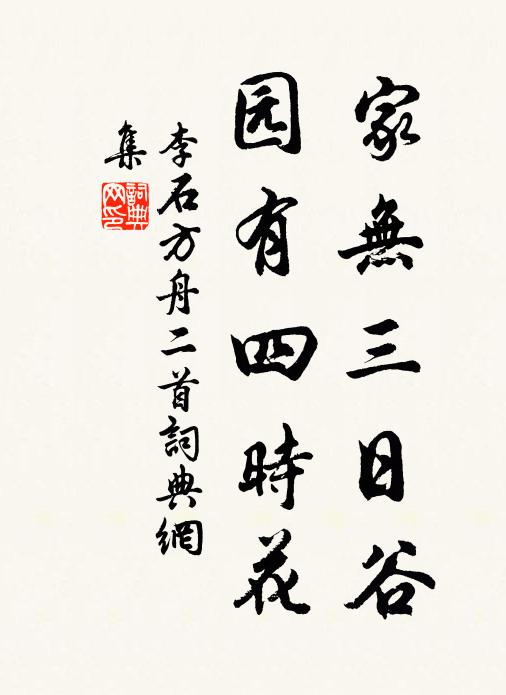 家無三日谷
园有四時花
李石方舟二首詞典網
集
詞典網印